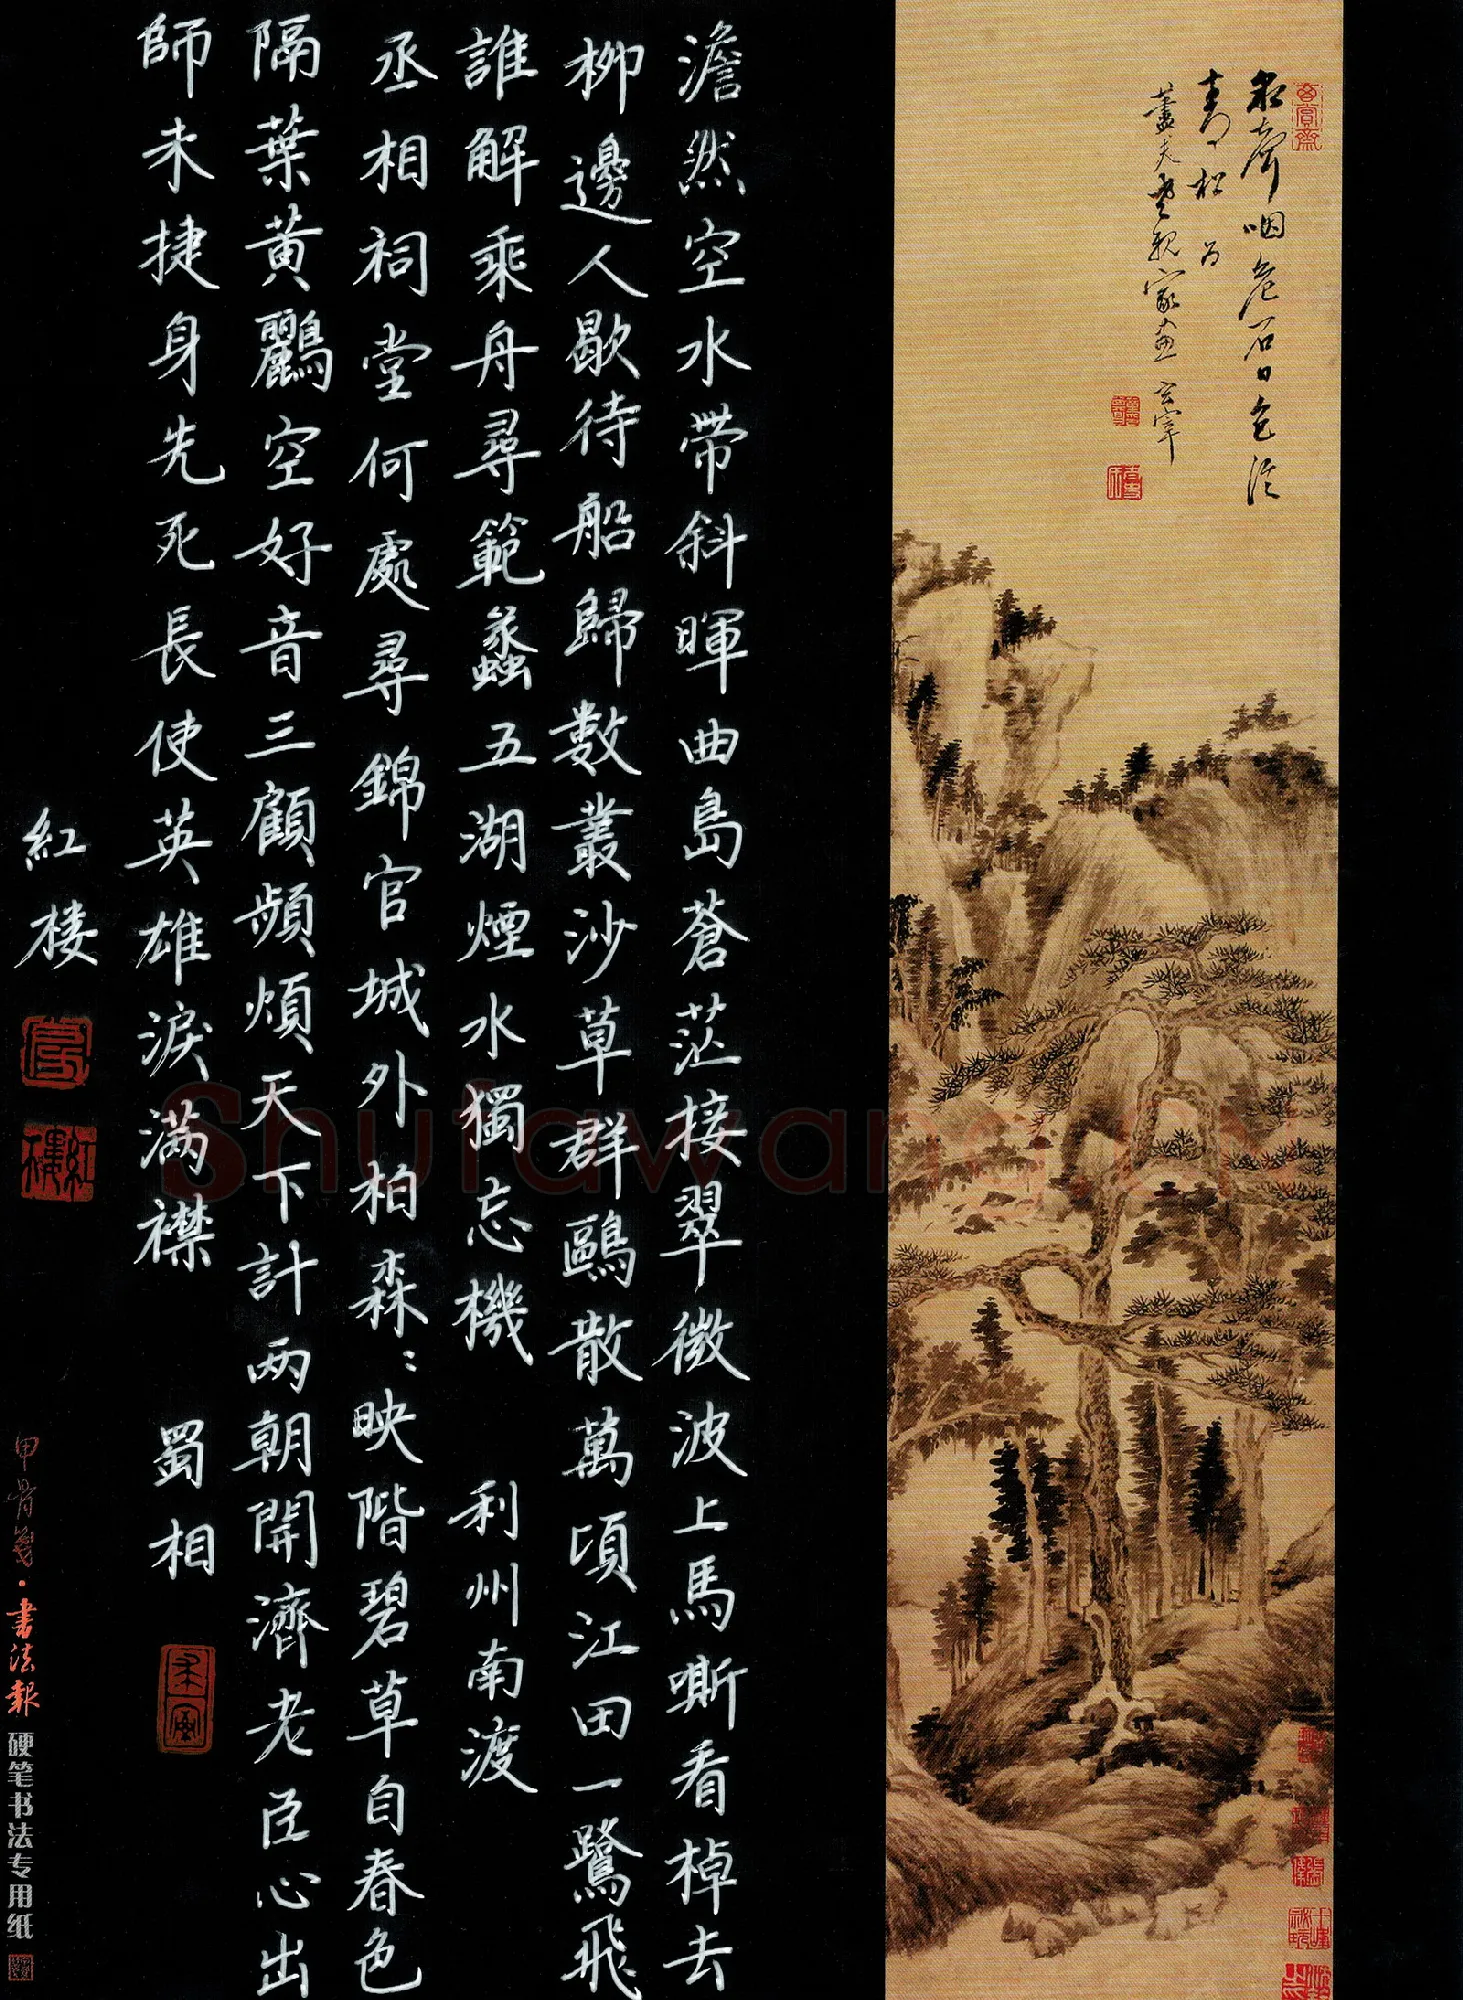 泉聲咽危石日色冷
青松 為
蓋夫老親家畫 玄宰
澹然空水帶斜暉曲島蒼茫接翠微波上馬嘶看棹去
柳邊人歇待船歸數叢沙草群鷗散萬頃江田一鷺飛
誰解乘舟尋範蠡五湖煙水獨忘機 利州南渡
丞相祠堂何處尋錦官城外柏森〻映階碧草自春色
隔葉黃鸝空好音三顧頻煩天下計兩朝開濟老臣心出
師未捷身先死長使英雄淚满襟 蜀相
紅楼
紅樓
甲骨箋·書法報 硬笔书法专用纸
Shufawang.cn